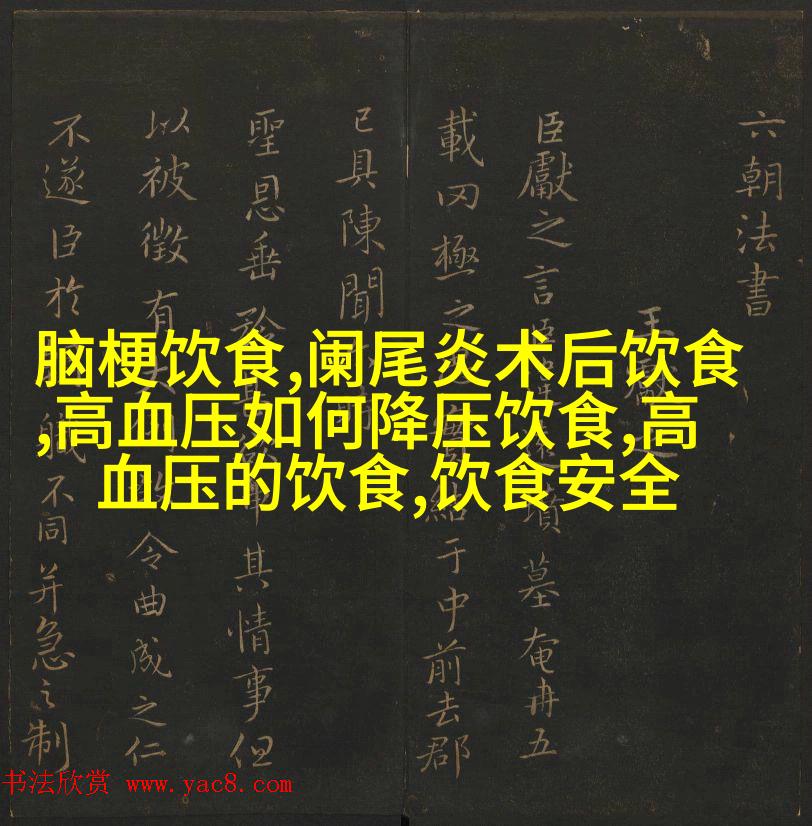 六朝法書
王獻之
臣獻之言墓奄冉五
載罔極之于中前去郡
已具陳聞
聖恩垂其情事但
以被徵有令曲成之仁
不遂臣於職不同并急之制
脑梗饮食,阑尾炎术后饮食
,高血压如何降压饮食,高
血压的饮食,饮食安全
书法欣赏 www.yac8.com